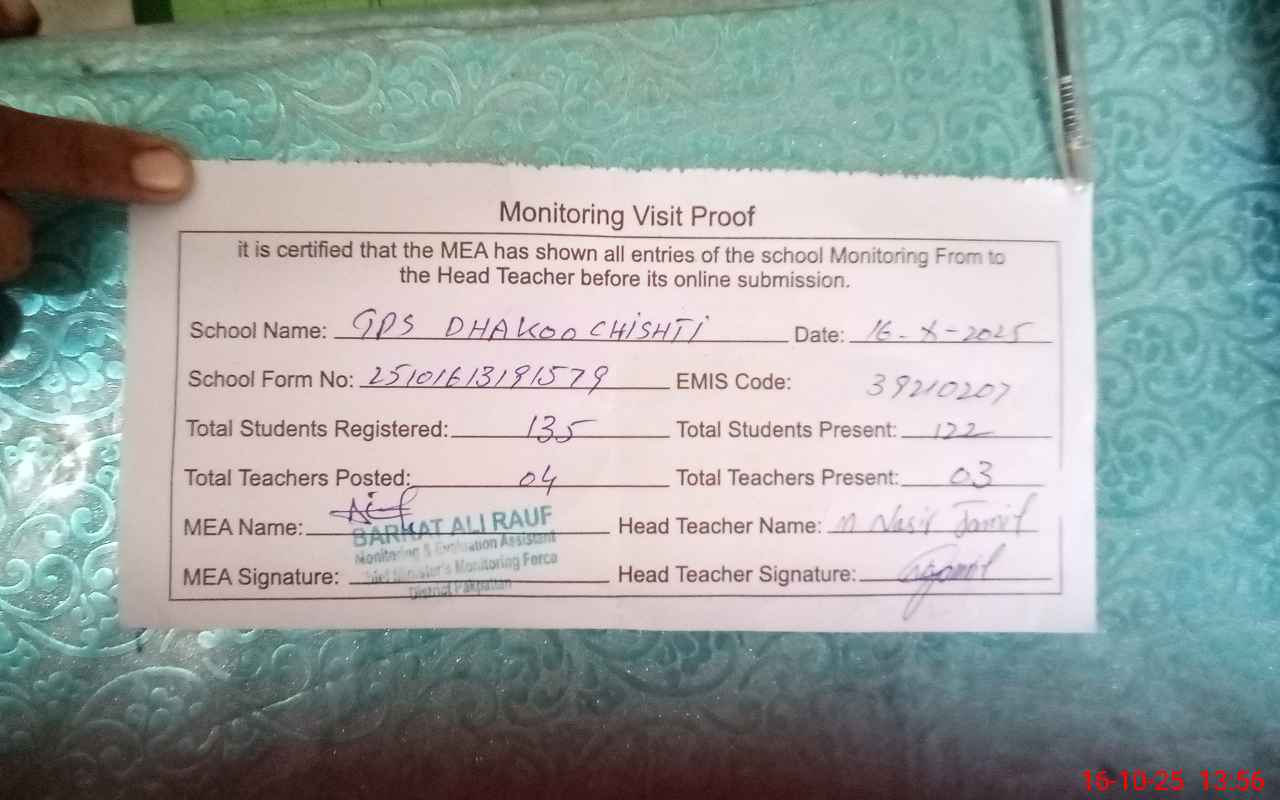 Monitoring Visit Proof
it is certified that the MEA has shown all entries of the school Monitoring From to
the Head Teacher before its online submission.
School Name: GPS DHAKOO CHISHTI Date: 16-X-2025
School Form No: 2510161319 1579 EMIS Code: 39210207
Total Students Registered: 135 Total Students Present: 122
Total Teachers Posted: 04 Total Teachers Present: 03
MEA Name: Head Teacher Name: M Nasir Jamil
BARKAT ALI RAUF
Monitoring & Evaluation Assistant
Chief Minister's Monitoring Force
District Pakpattan
MEA Signature: Head Teacher Signature:
16-10-25 13:56